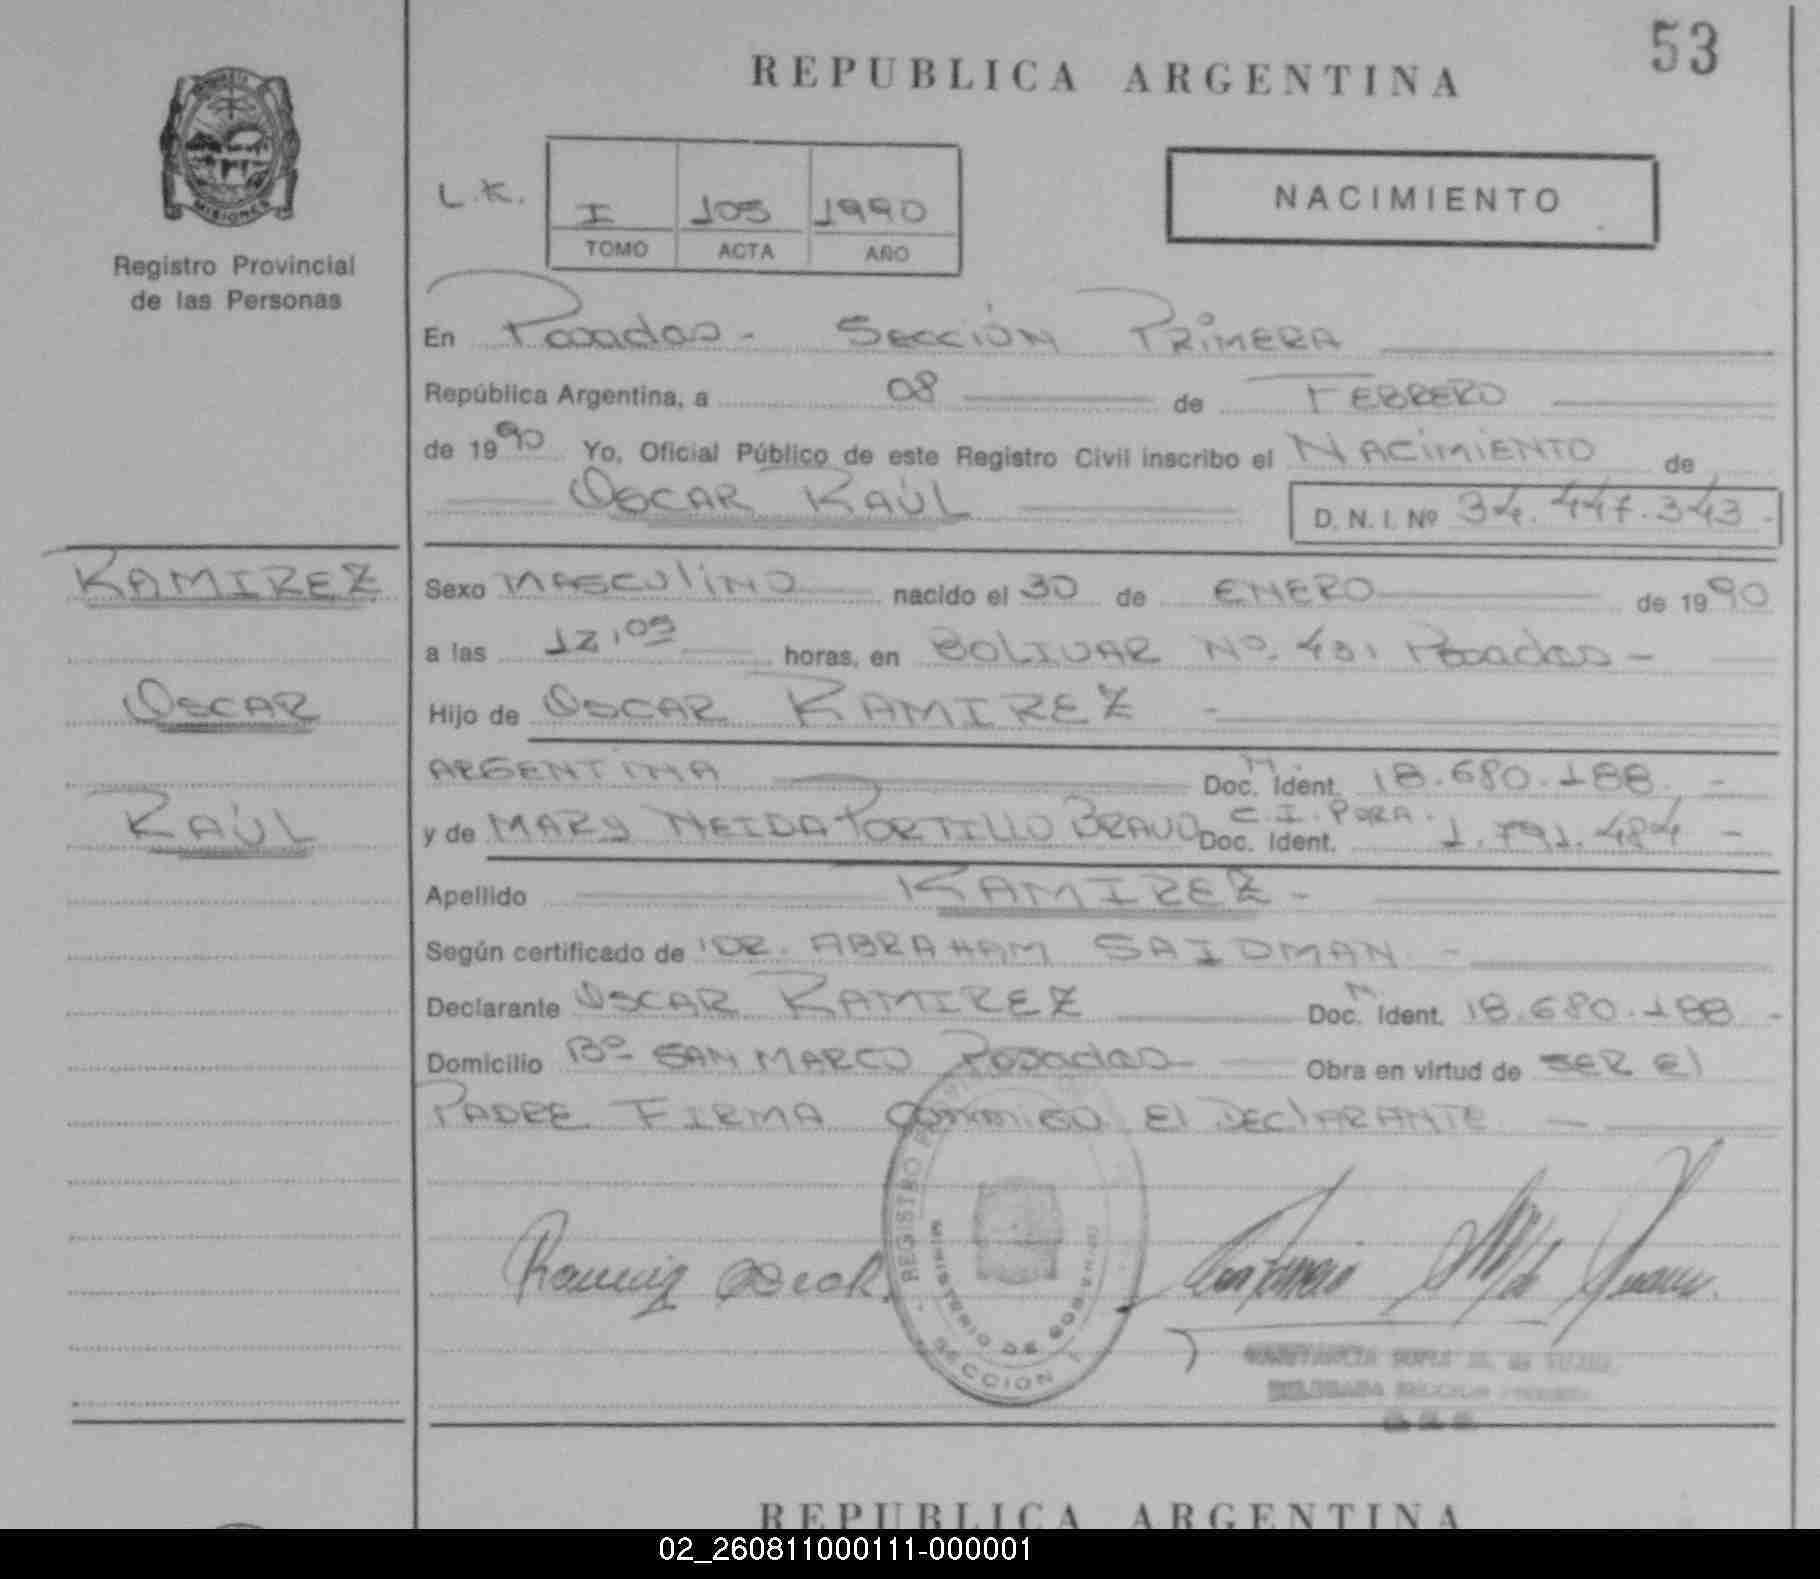 53
REPUBLICA ARGENTINA
L.K.
I 105 1990
TOMO ACTA AÑO
NACIMIENTO
MISIONES
Registro Provincial
de las Personas
En Posadas - SECCIÓN PRIMERA
República Argentina, a 08 de FEBRERO
de 1990 Yo, Oficial Público de este Registro Civil inscribo el NACIMIENTO de
OSCAR RAÚL D. N. I. Nº 34.447.343-
RAMIREZ
OSCAR
RAÚL
Sexo MASCULINO nacido el 30 de ENERO de 1990
a las 12,05 horas, en BOLIVAR Nº. 431 Posadas -
Hijo de OSCAR RAMIREZ -
ARGENTINA Doc. Ident. 18.680.188. -
y de MARY NEIDA PORTILLO BRAVO Doc. Ident. C.I. PGRA. 1.791.484 -
Apellido RAMIREZ -
Según certificado de DR. ABRAHAM SAIDMAN. -
Declarante OSCAR RAMIREZ Doc. Ident. 18.680.188 -
Domicilio Bº SAN MARCO Posadas - Obra en virtud de SER El
PADRE. FIRMA CONMIGO El DEClARANTE. -
REGISTRO
MINISTERIO DE GOBIERNO
SECCION 1
REPUBLICA ARGENTINA
02_260811000111-000001